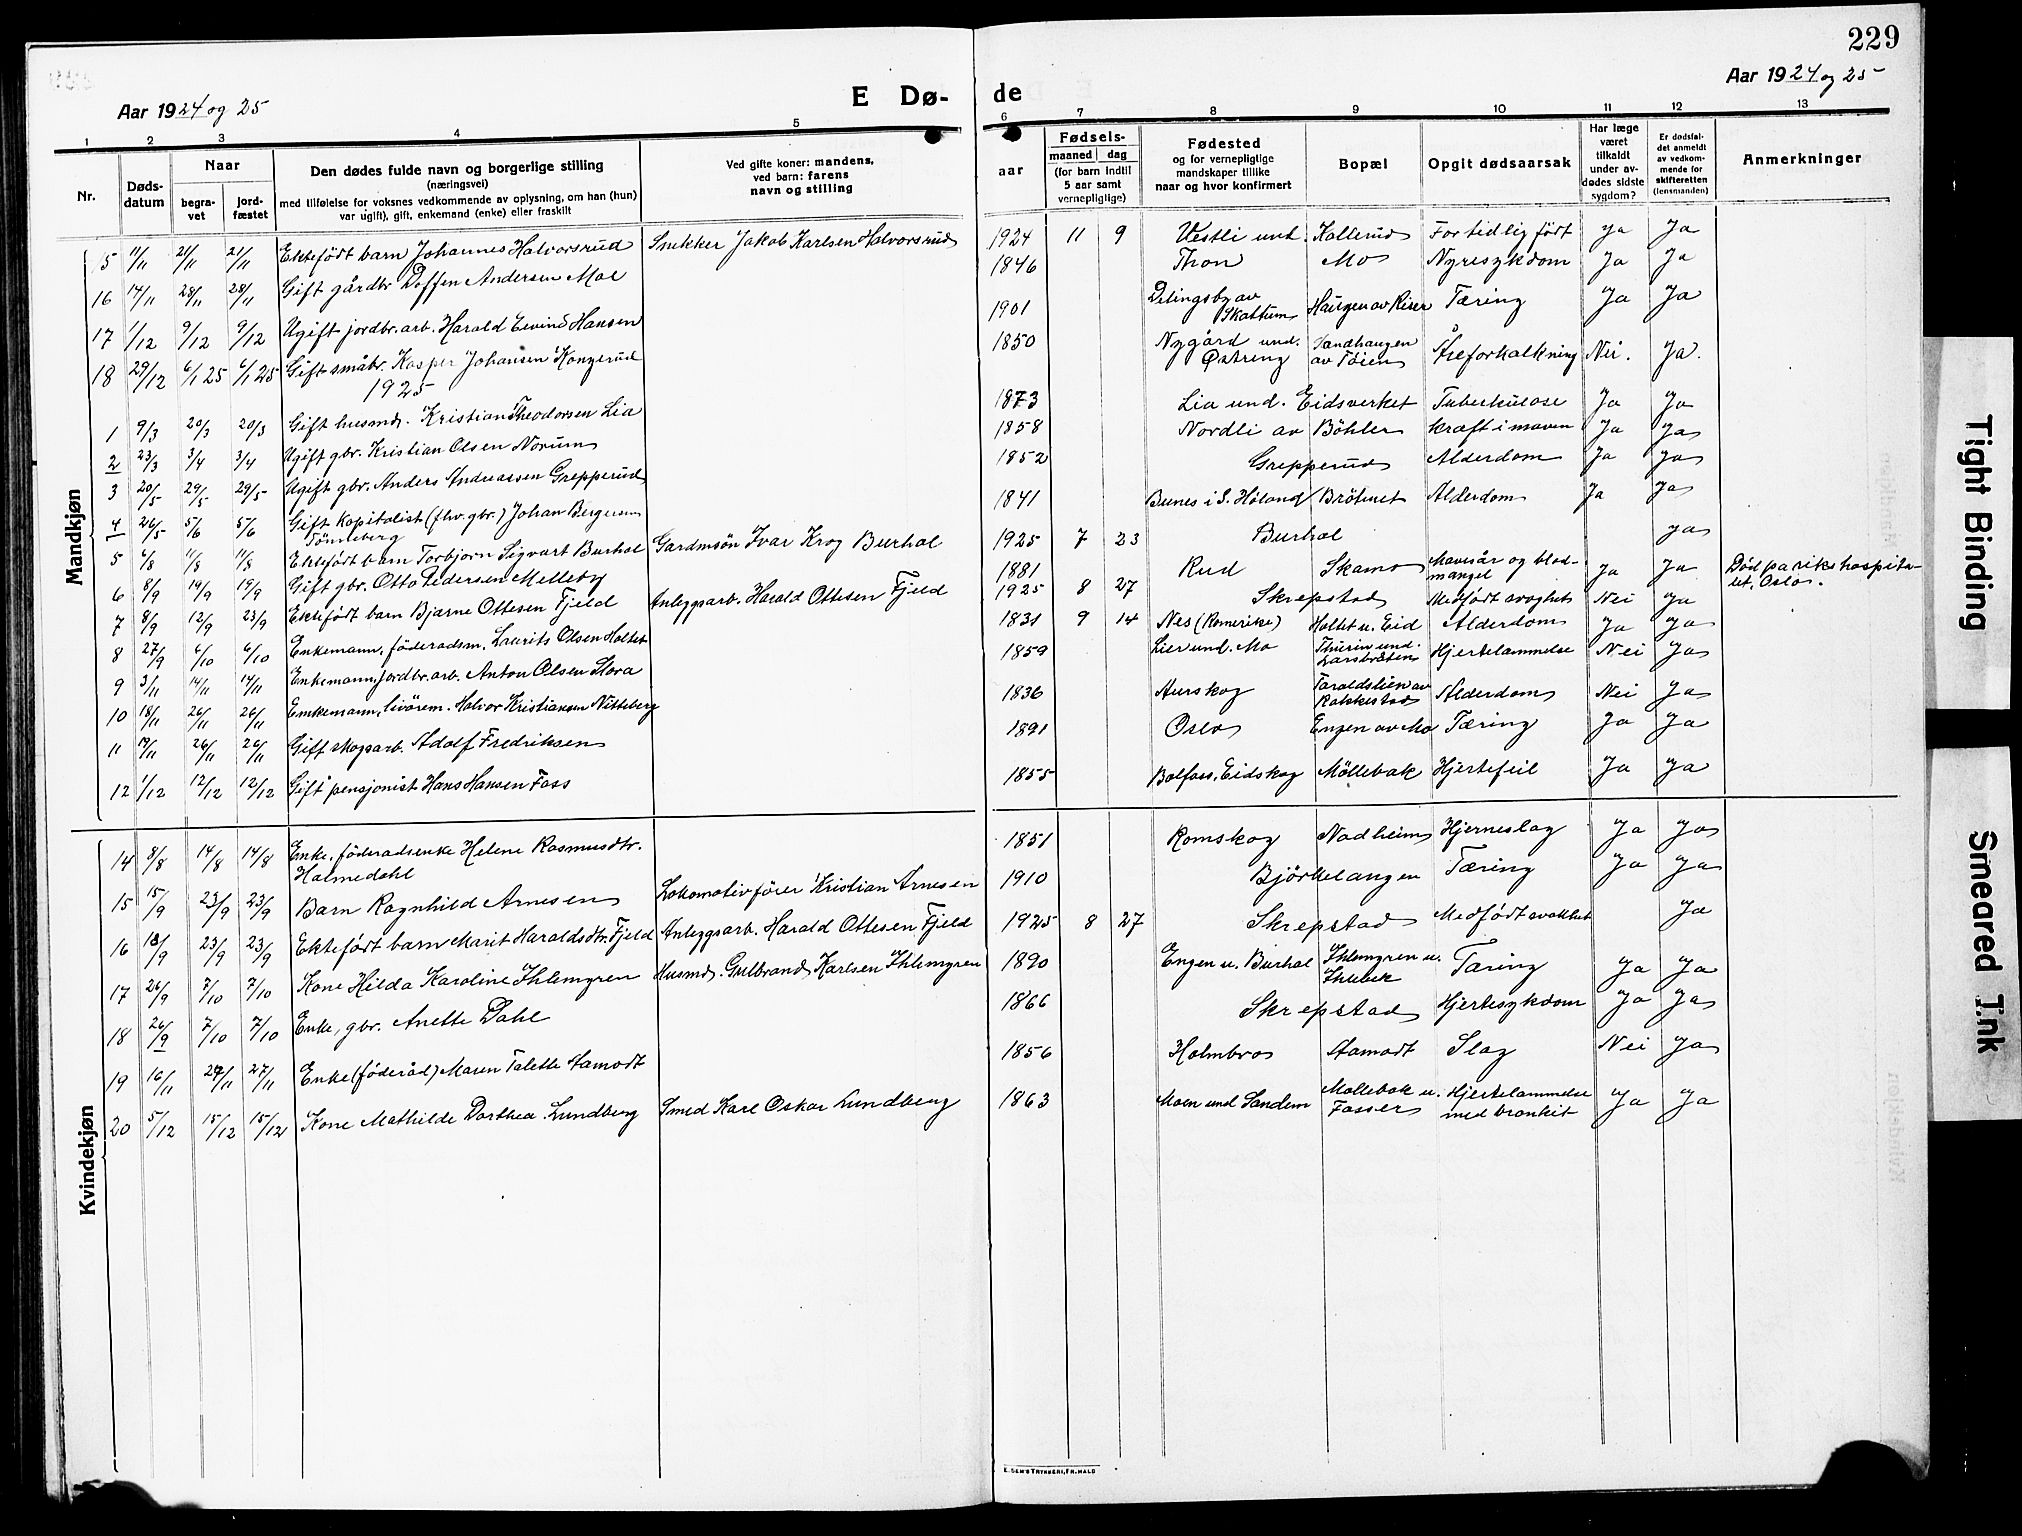 229
Aar 1924 og 25
E Dø-
de
Aar 1924 og 25
1 2 3 4 5 6 7 8 9 10 11 12 13
Nr.
Døds-datum
Naar
begra-vet
jord-fæstet
Den dødes fulde navn og borgerlige stilling
(næringsvei)
med tilføielse for voksnes vedkommende av oplysning, om han (hun)
var ugift), gift, enkemand (enke) eller fraskilt
Ved gifte koner: mandens,
ved barn: farens
navn og stilling
aar
Fødsels-
maaned dag
(for barn indtil
5 aar samt
vernepligtige)
Fødested
og for vernepligtige
mandskaper tillike
naar og hvor konfirmert
Bopæl
Opgit dødsaarsak
Har læge
været
tilkaldt
under av-
dødes sidste
sygdom?
Er dødsfal-
det anmeldt
av vedkom-
mende for
skifteretten
(lensmanden)
Anmerkninger
Mandkjøn
5 11/11 21/11 21/11 Ektefödt barn Johannes Halvorsrud Snekker Jakob Karlsen Halvorsrud 1924 11 9 Vestli und. Kollerud For tidlig født Ja Ja
16 14/11 28/11 28/11 Gift gårdbr. Deffen Andersen Moe 1846 Thon Mo Nyresykdom Ja Ja
17 1/12 9/12 9/12 Ugift jordbr. arb. Harald Eivind Hansen 1901 Delingsby av Skattum Haugen av Riser Tæring Ja Ja
18 29/12 6/1 25 6/1 25 Gift småbr. Kasper Johansen Kongerud 1850 Nygård und. Østreng Sandhaugen av Töien Åreforkalkning Nei. Ja.
1925
1 9/3 20/3 20/3 Gift husmd. Kristian Theodorsen Lia 1873 Lia und. Eidsverket Tuberkulose Ja Ja
2 23/3 3/4 3/4 Ugift gbr. Kristian Olsen Norum 1858 Nordli av Böhler Kræft i maven Ja Ja
3 20/5 29/5 29/5 Ugift gbr. Anders Andreassen Grepperud 1852 Grepperud Alderdom Ja Ja
4 26/5 5/6 5/6 Gift kapitalist (fhv. gbr.) Johan Bergersen Tönneberg 1841 Bunes i S. Höland Brötnet Alderdom Ja Ja
5 6/8 11/8 11/8 Ektefödt barn Torbjorn Sigvart Burhol Gardmsön Ivar Krog Burhol 1925 7 23 Burhol Ja
6 8/9 19/9 19/9 Gift gbr. Otto Pedersen Melleby 1881 Rud Skamo Mavesår og blod-mangel Ja Ja Död pa rikshospita-let, Oslo.
7 8/9 12/9 23/9 Ektefödt barn Bjarne Ottesen Fjeld Anleggsarb. Harald Ottesen Fjeld 1925 8 27 Skrepstad Medfödt svaghet Nei Ja
8 27/9 6/10 6/10 Enkemann, föderadsm. Laurits Olsen Holtet 1831 9 14 Nes (Romerike) Holtet u. Eid Alderdom Ja Ja
9 3/11 14/11 14/11 Enkemann, jordbr. arb. Anton Olsen Slora 1859 Lier und. Mo Thurin und. Larsbråten Hjertelammelse Nei Ja
10 18/11 26/11 26/11 Enkemann, livörem. Halvor Kristiansen Nitteberg 1836 Aurskog Taraldslien av Rakkestad Alderdom Nei Ja
11 19/11 26/11 26/11 Gift skogsarb. Adolf Fredriksen 1891 Oslo Engen av Mo Tæring Ja Ja
12 1/12 12/12 12/12 Gift pensjonist Hans Hansen Foss 1855 Bolfoss, Eidskog Möllebak Hjertefeil Ja Ja
Kvindekjøn
14 8/8 14/8 14/8 Enke, föderadsenke Helene Rasmusdtr. Holmedahl 1851 Romskog Nadheim Hjerneslag Ja Ja
15 15/9 23/9 23/9 Barn Ragnhild Arnesen Lokomotivförer Kristian Arnesen 1910 Björkelangen Tæring Ja Ja
16 18/9 23/9 23/9 Ektefört barn Marit Haraldsdtr. Fjeld Anleggsarb. Harald Ottesen Fjeld 1925 8 27 Skrepstad Medfödt svakhet Ja
17 26/9 7/10 7/10 Kone Hilda Karoline Ihlemgren Husmd. Gulbrand Karlsen Ihlemgren 1890 Engen u. Burhol Ihlemgren u. Tæring Ja Ja
18 26/9 7/10 7/10 Enke, gbr. Anette Dahl 1866 Skrepstad Hjertesykdom Ja Ja
19 16/11 27/11 27/11 Enke (föderåd) Maren Talette Aamodt 1856 Holmbro Aamodt Slag Nei Ja
20 5/12 15/12 15/12 Kone Mathilde Dorthea Lundberg Smed Karl Oskar Lundberg 1863 Moen und Sandem Möllebak u. Fosser Hjertelammelse med bronkit Ja Ja
E. SEM'S TRYKKERI, FR. HALD
Tight Binding
Smeared Ink